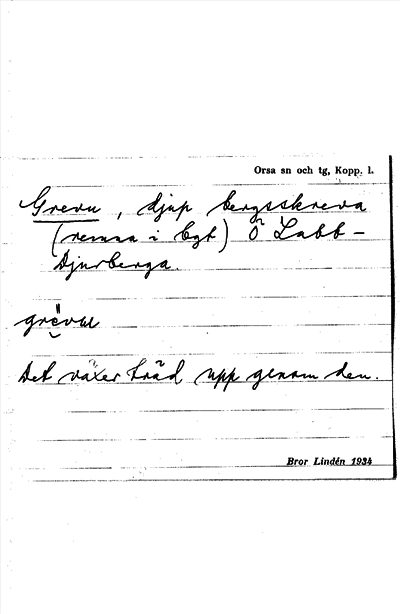 Orsa sn och tg, Kopp. l.
Grevu, djup bergsskreva
(remna i bgt) Ö Labb-
Djurberga.
Det växer träd upp genom den.
Bror Lindén 1934